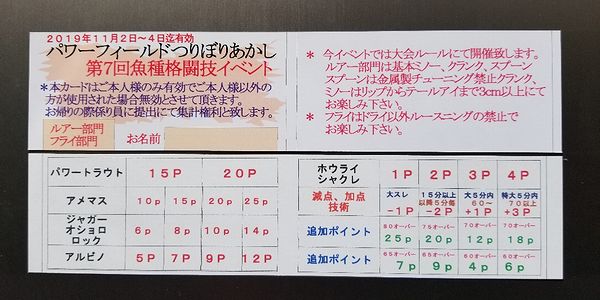 2019年11月2日~4日迄有効
パワーフィールドつりぼりあかし
第7回魚種格闘技イベント
*本カードはご本人様のみ有効でご本人様以外の
方が使用された場合無効とさせて頂きます。
お帰りの際係り員に提出にて集計権利と致します。
ルアー部門
フライ部門
お名前
* 今イベントでは大会ルールにて開催致します。
ルアー部門は基本ミノー、クランク、スプーン
スプーンは金属製チューニング禁止クランク、
ミノーはリップからテールアイまで3cm以上にて
お楽しみ下さい。
* フライはドライ以外ルースニングの禁止で
お楽しみ下さい。
パワートラウト 15P 20P
アメマス 10p 15p 20p 25p
ジャガー
オショロ
ロック
6p 8p 10p 14p
アルビノ 5P 7P 9P 12P
ホウライ
シャクレ
1P 2P 3P 4P
減点、加点
技術
大スレ
-1P
15分以上
以降5分毎
-2P
大5分内
60~
+1P
特大5分内
70以上
+3P
追加ポイント
80オーバー 75オーバー 70オーバー
25p 20p 12p 18p
追加ポイント
65オーバー 60オーバー
7p 9p 4p 6p